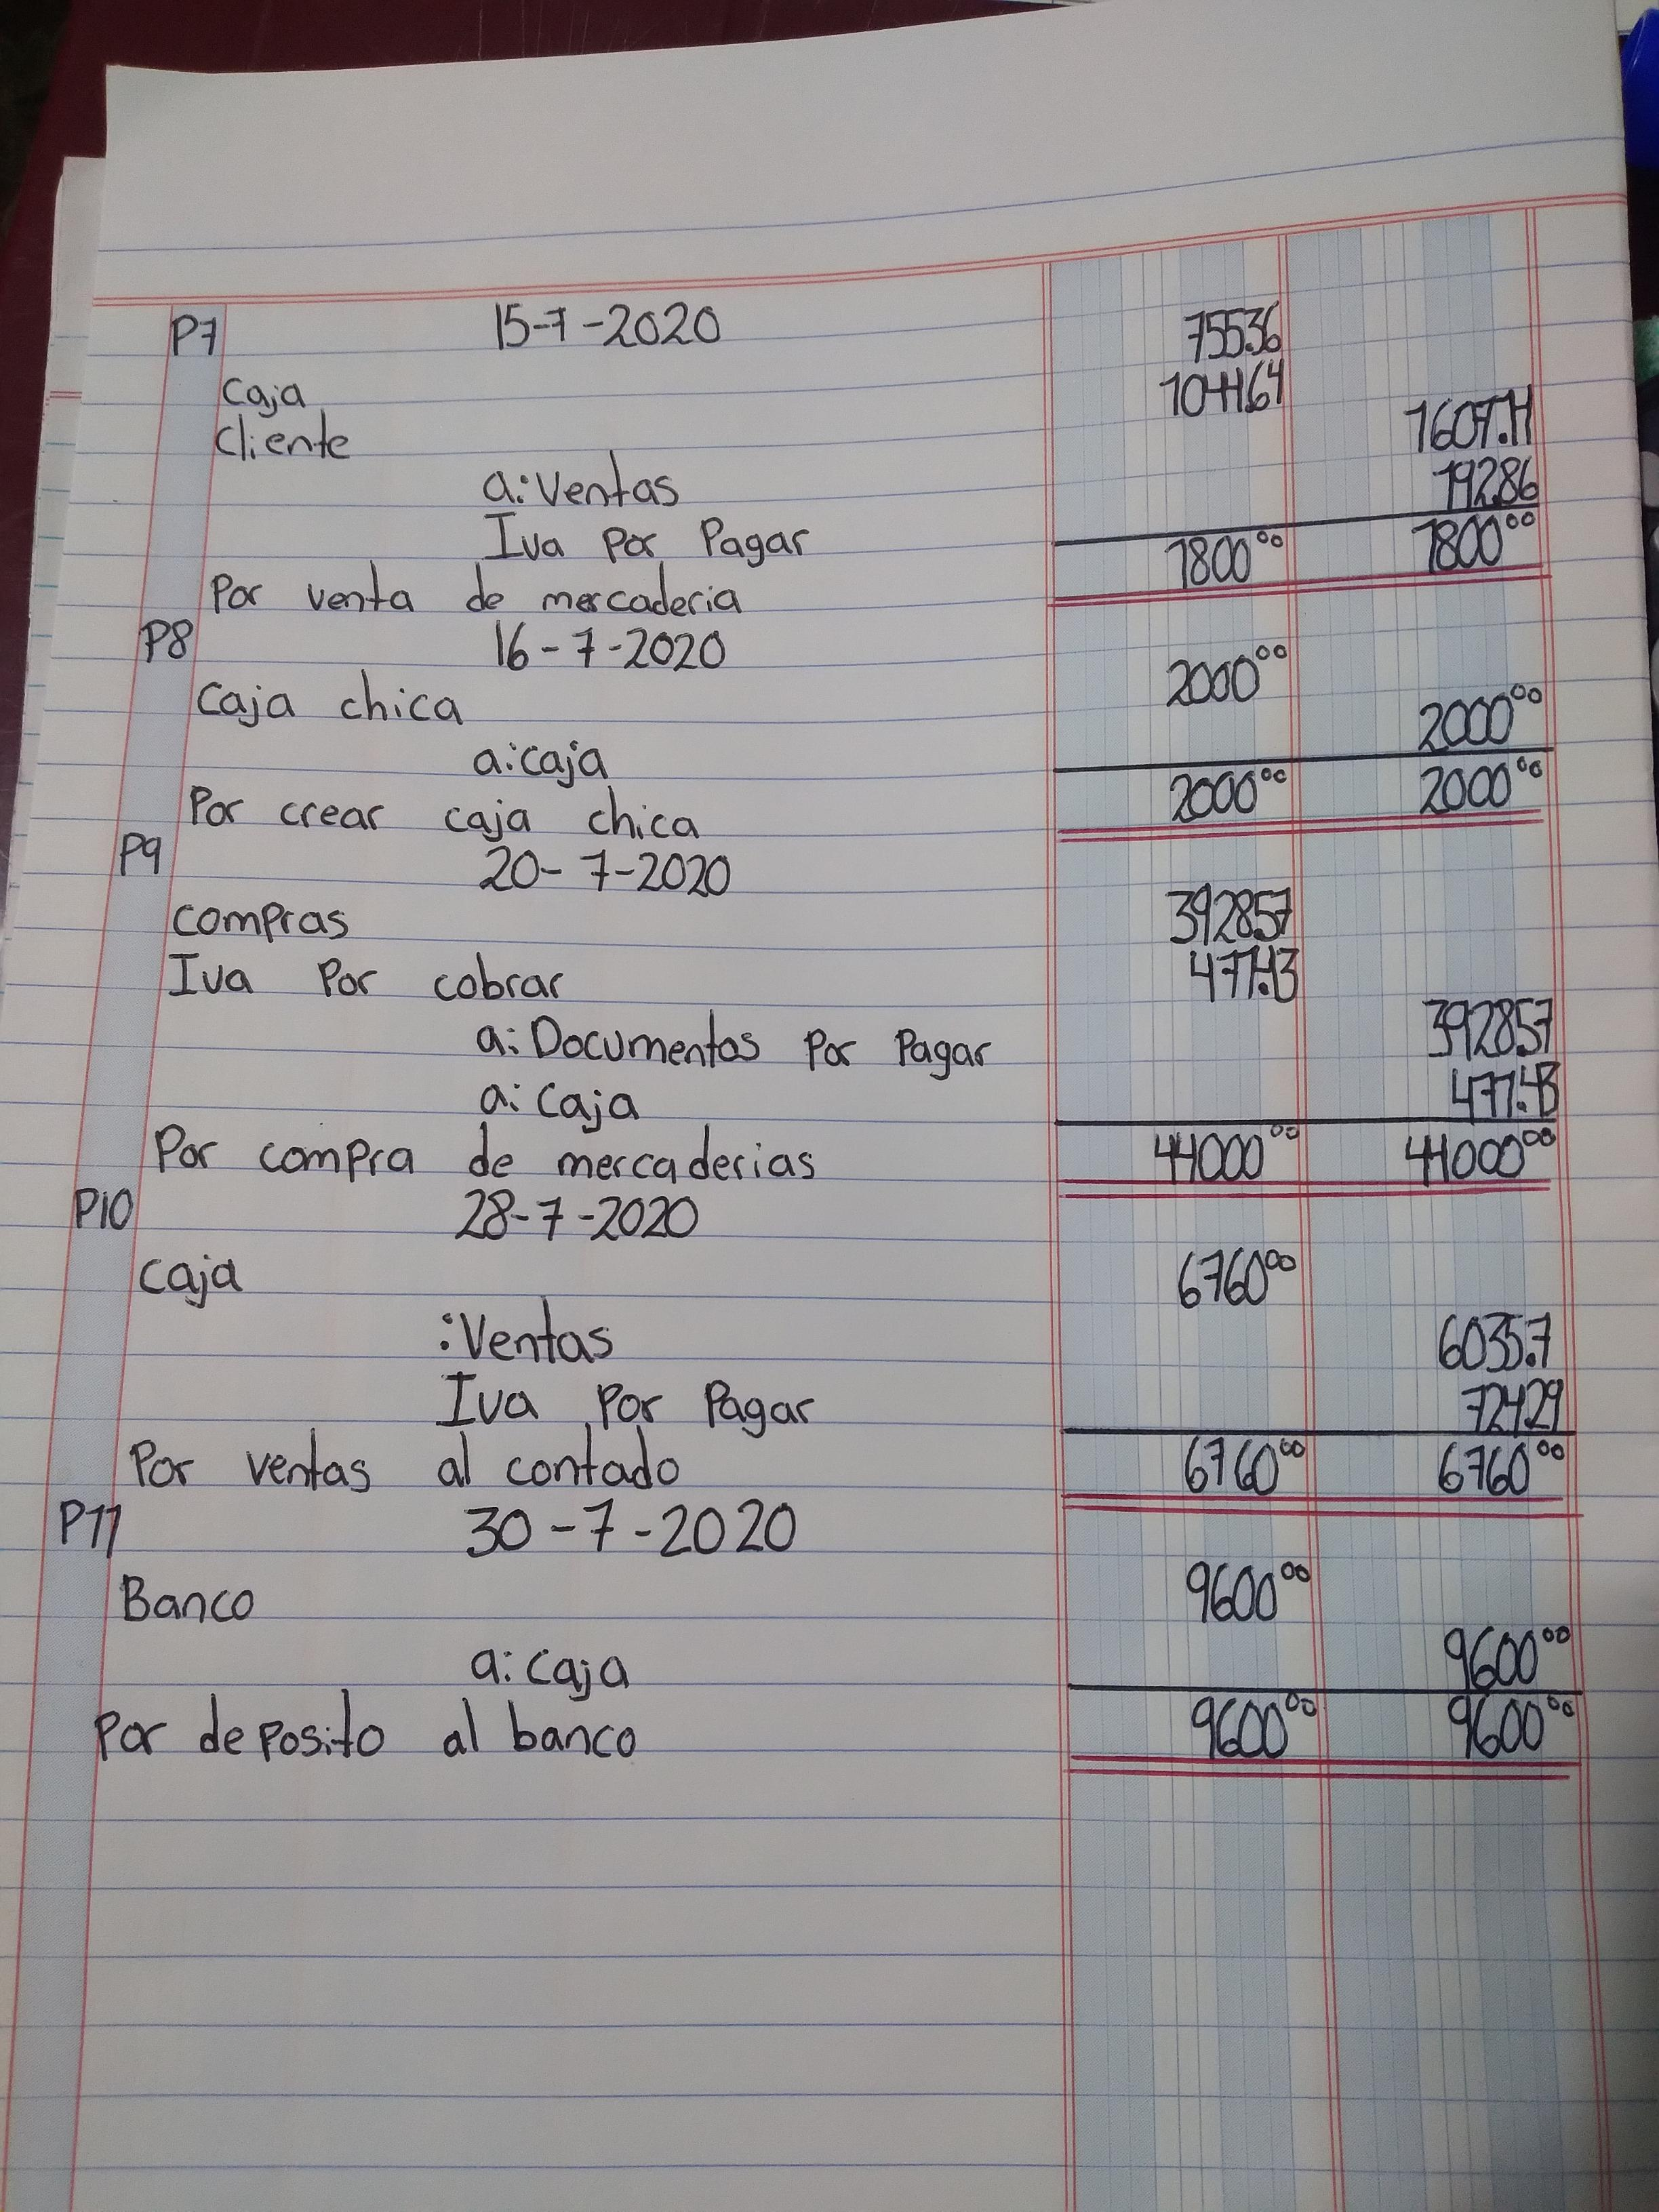 P7 15-7-2020 755.36
Caja 1044.64
Cliente 1607.14
a: Ventas 192.86
Iva Por Pagar 1800⁰⁰ 1800⁰⁰
Por venta de mercaderia
P8 16-7-2020 2000⁰⁰
Caja chica 2000⁰⁰
a: caja 2000⁰⁰ 2000⁰⁰
Por crear caja chica
P9 20-7-2020
compras 3928.57
Iva Por cobrar 471.43
a: Documentos Por Pagar 3928.57
a: Caja 471.43
Por compra de mercaderias 44000⁰⁰ 44000⁰⁰
P10 28-7-2020
Caja 6760⁰⁰
:Ventas 6035.7
Iva Por Pagar 724.29
Por ventas al contado 6760⁰⁰ 6760⁰⁰
P11 30-7-2020
Banco 9600⁰⁰
a: caja 9600⁰⁰
Por deposito al banco 9600⁰⁰ 9600⁰⁰